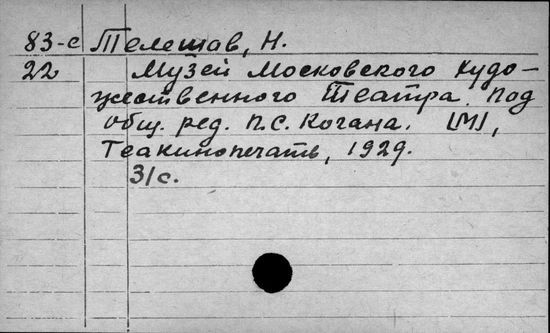 83-с Телешов, Н.
22 Музей Московского худо-
жественного театра. Под
общ. ред. П.С. Когана. [М],
Теакинопечать, 1929.
31с.